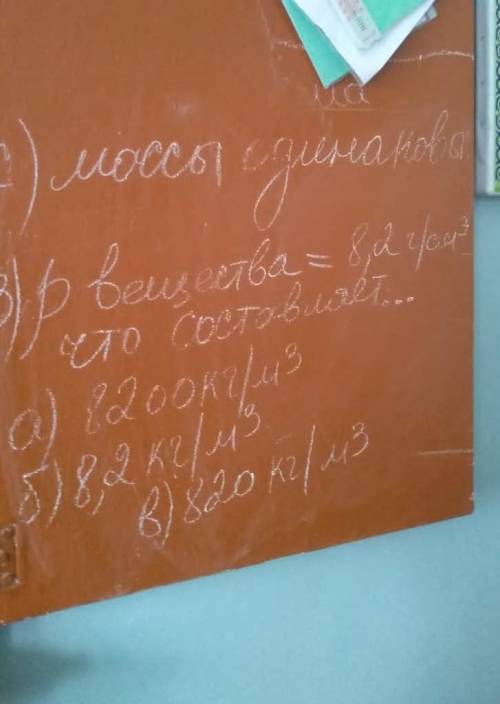 ) массы одинаковы
3) р вещества = 8,2 г/см³
что составляет...
а) 8200кг/м³
б) 8,2 кг/м³
в) 820 кг/м³